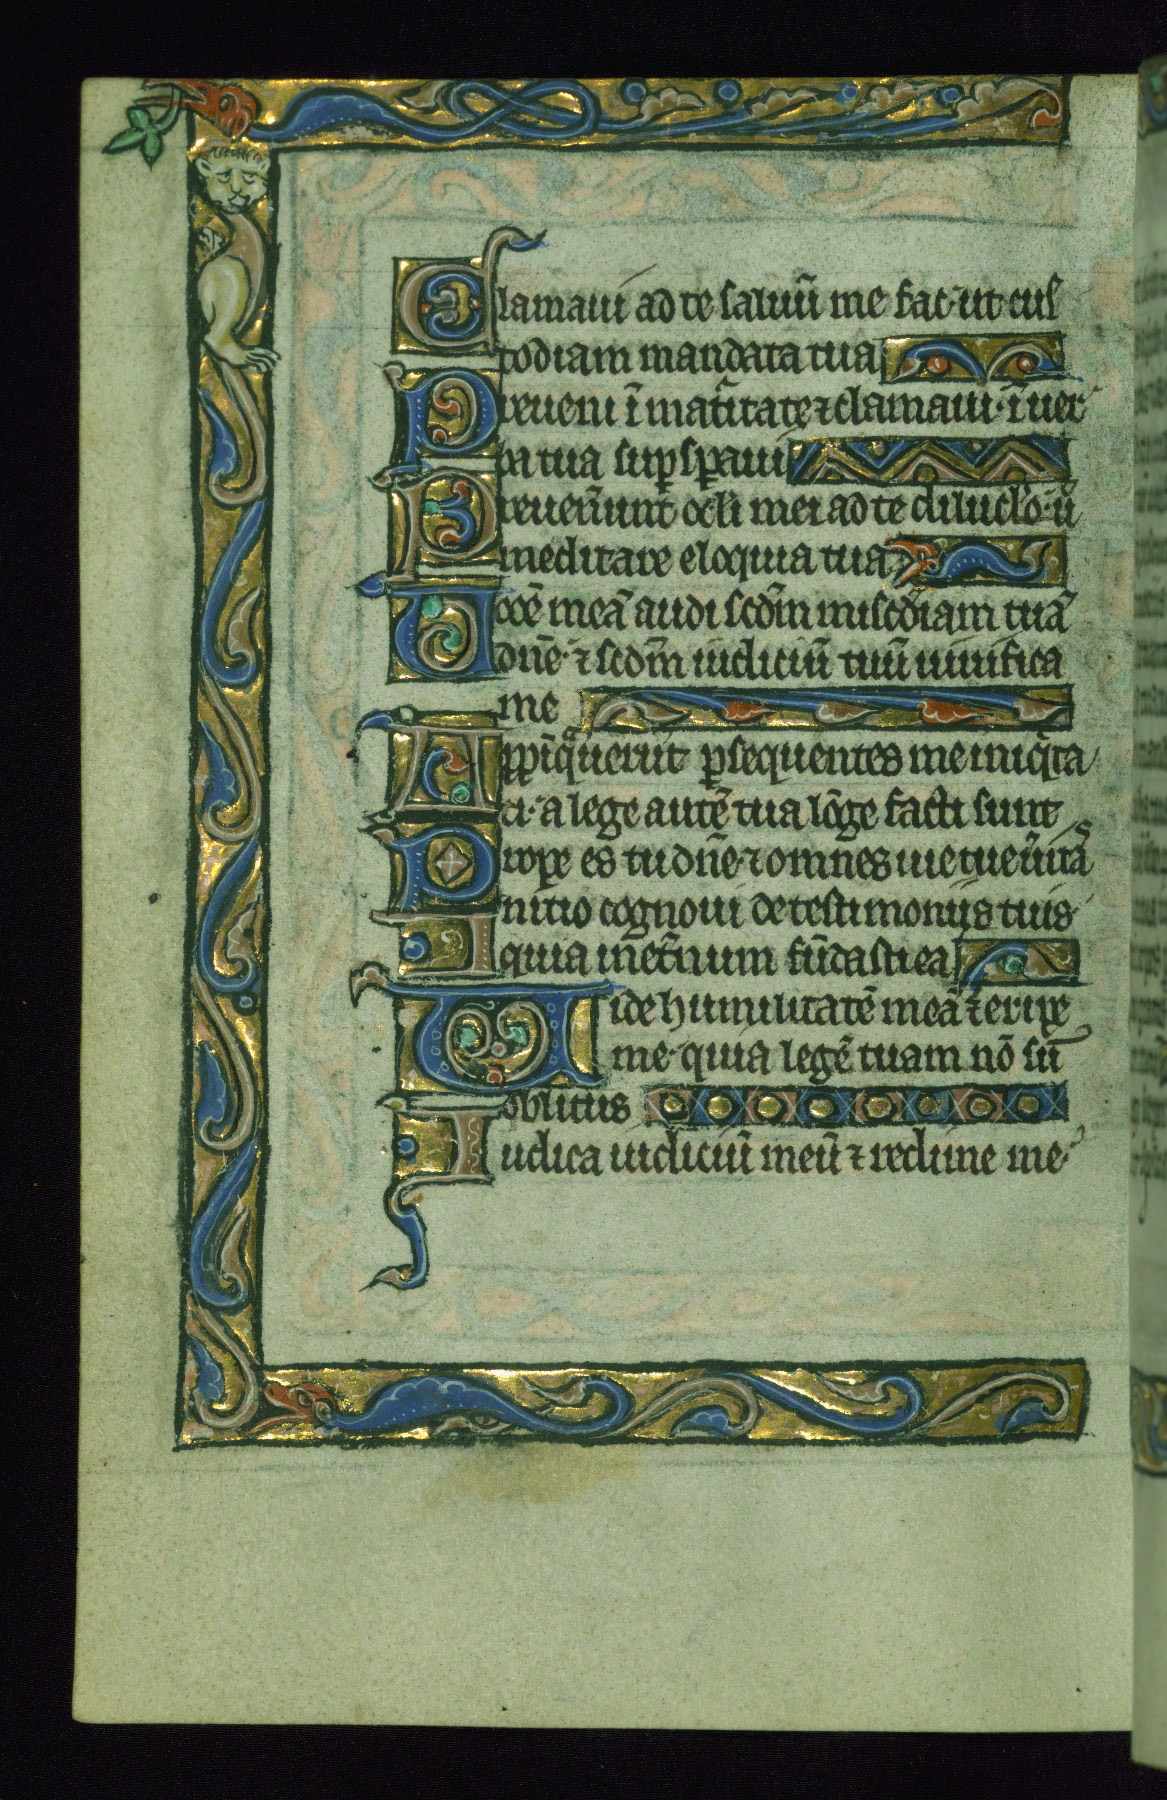 Clamaui ad te saluū me fac· ut cus
todiam mandata tua
Preueni ī mat̃itate ⁊ clamaui· ī uer
ba tua sup̱ sp̱aui
Preuen̄unt oc̄li mei ad te diluc̄lo· ū
meditare eloquia tua
Uocē meā audi sc̄dm̄ mis̄cdiam tuā
dn̄e· ⁊ sc̄dm̄ iudiciū tuū uiuifica
me
App̄īq̃uerūt p̱sequentes me iniq̇ta
ti· a lege autē tua lōge facti sunt
Prope es tu dn̄e· ⁊ omnes uie tue ūitas
Initio cognoui de testimonijs tuis·
quia in et̄num fūdasti ea
Uide humilitatē meā ⁊ eripe
me· quia legē tuam nō sū
oblitus
Iudica iudiciū meū ⁊ redime me·